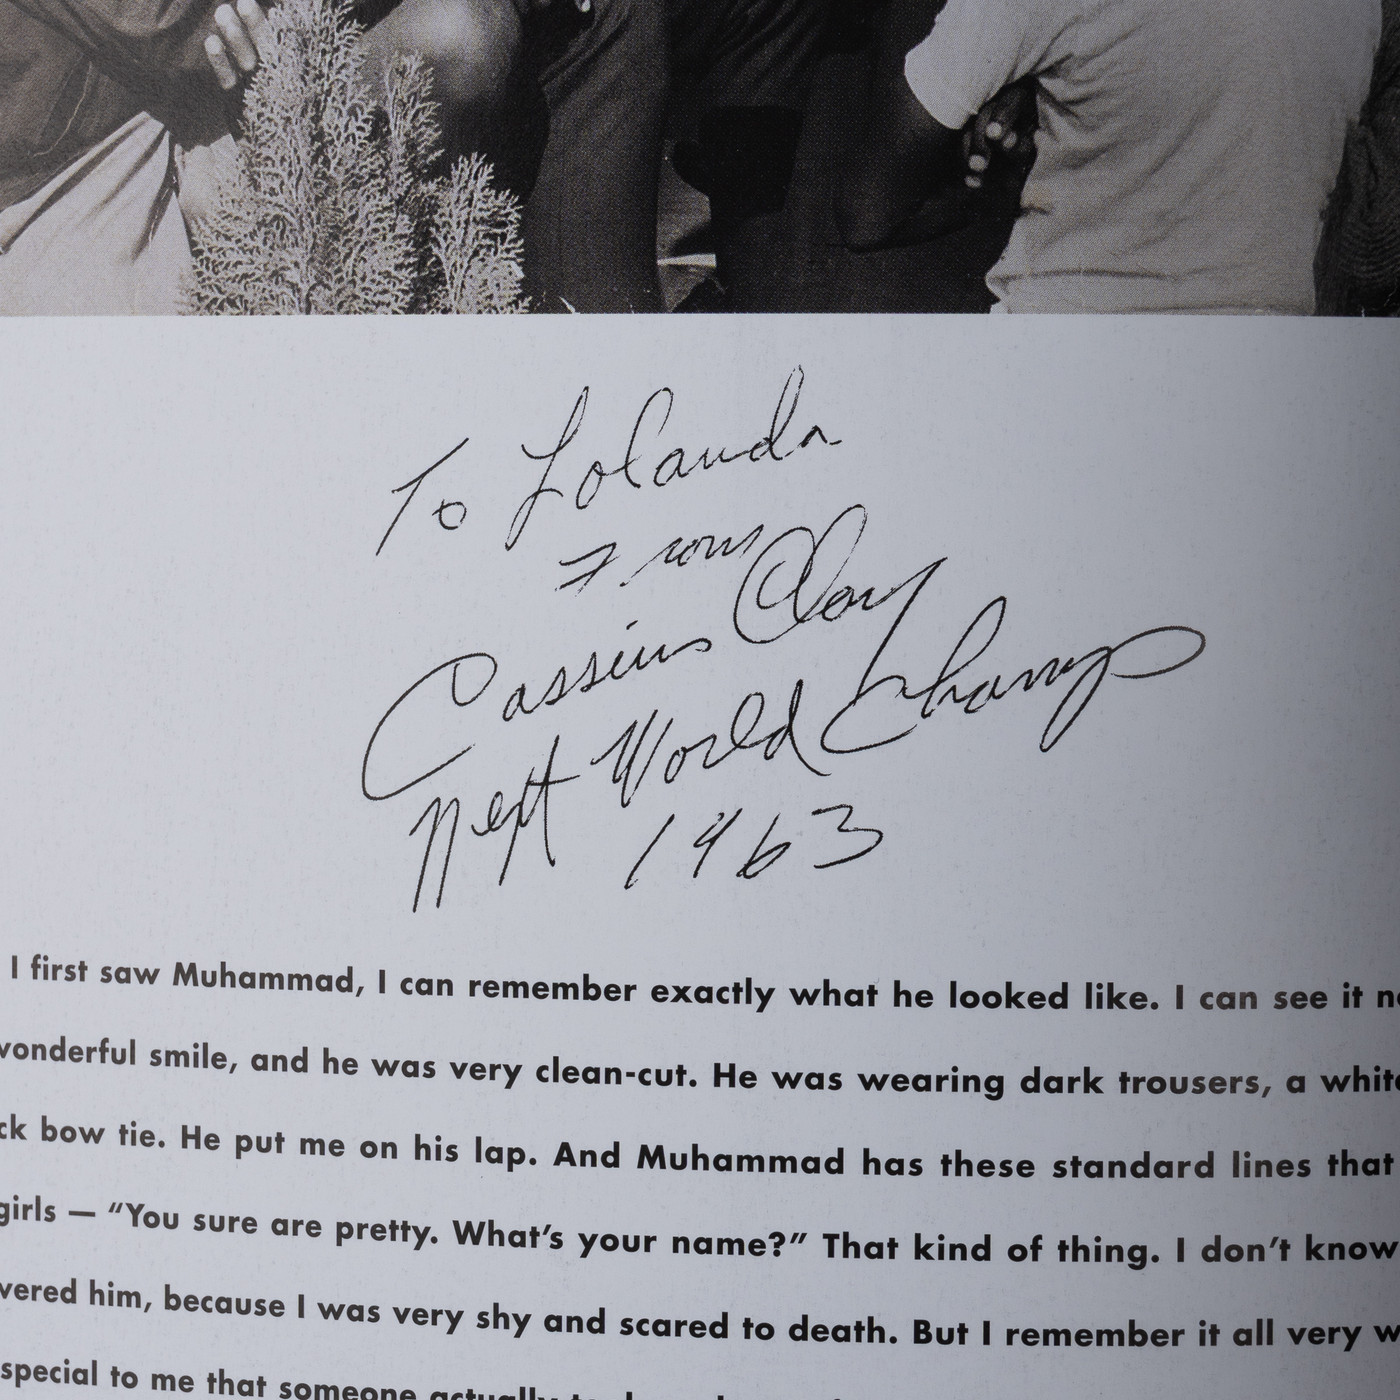 To Lolanda
From
Cassius Clay
Next World Champ
1963
I first saw Muhammad, I can remember exactly what he looked like. I can see it
wonderful smile, and he was very clean-cut. He was wearing dark trousers, a white
bow tie. He put me on his lap. And Muhammad has these standard lines that
girls — “You sure are pretty. What’s your name?” That kind of thing. I don’t know
him, because I was very shy and scared to death. But I remember it all very
special to me that someone actually